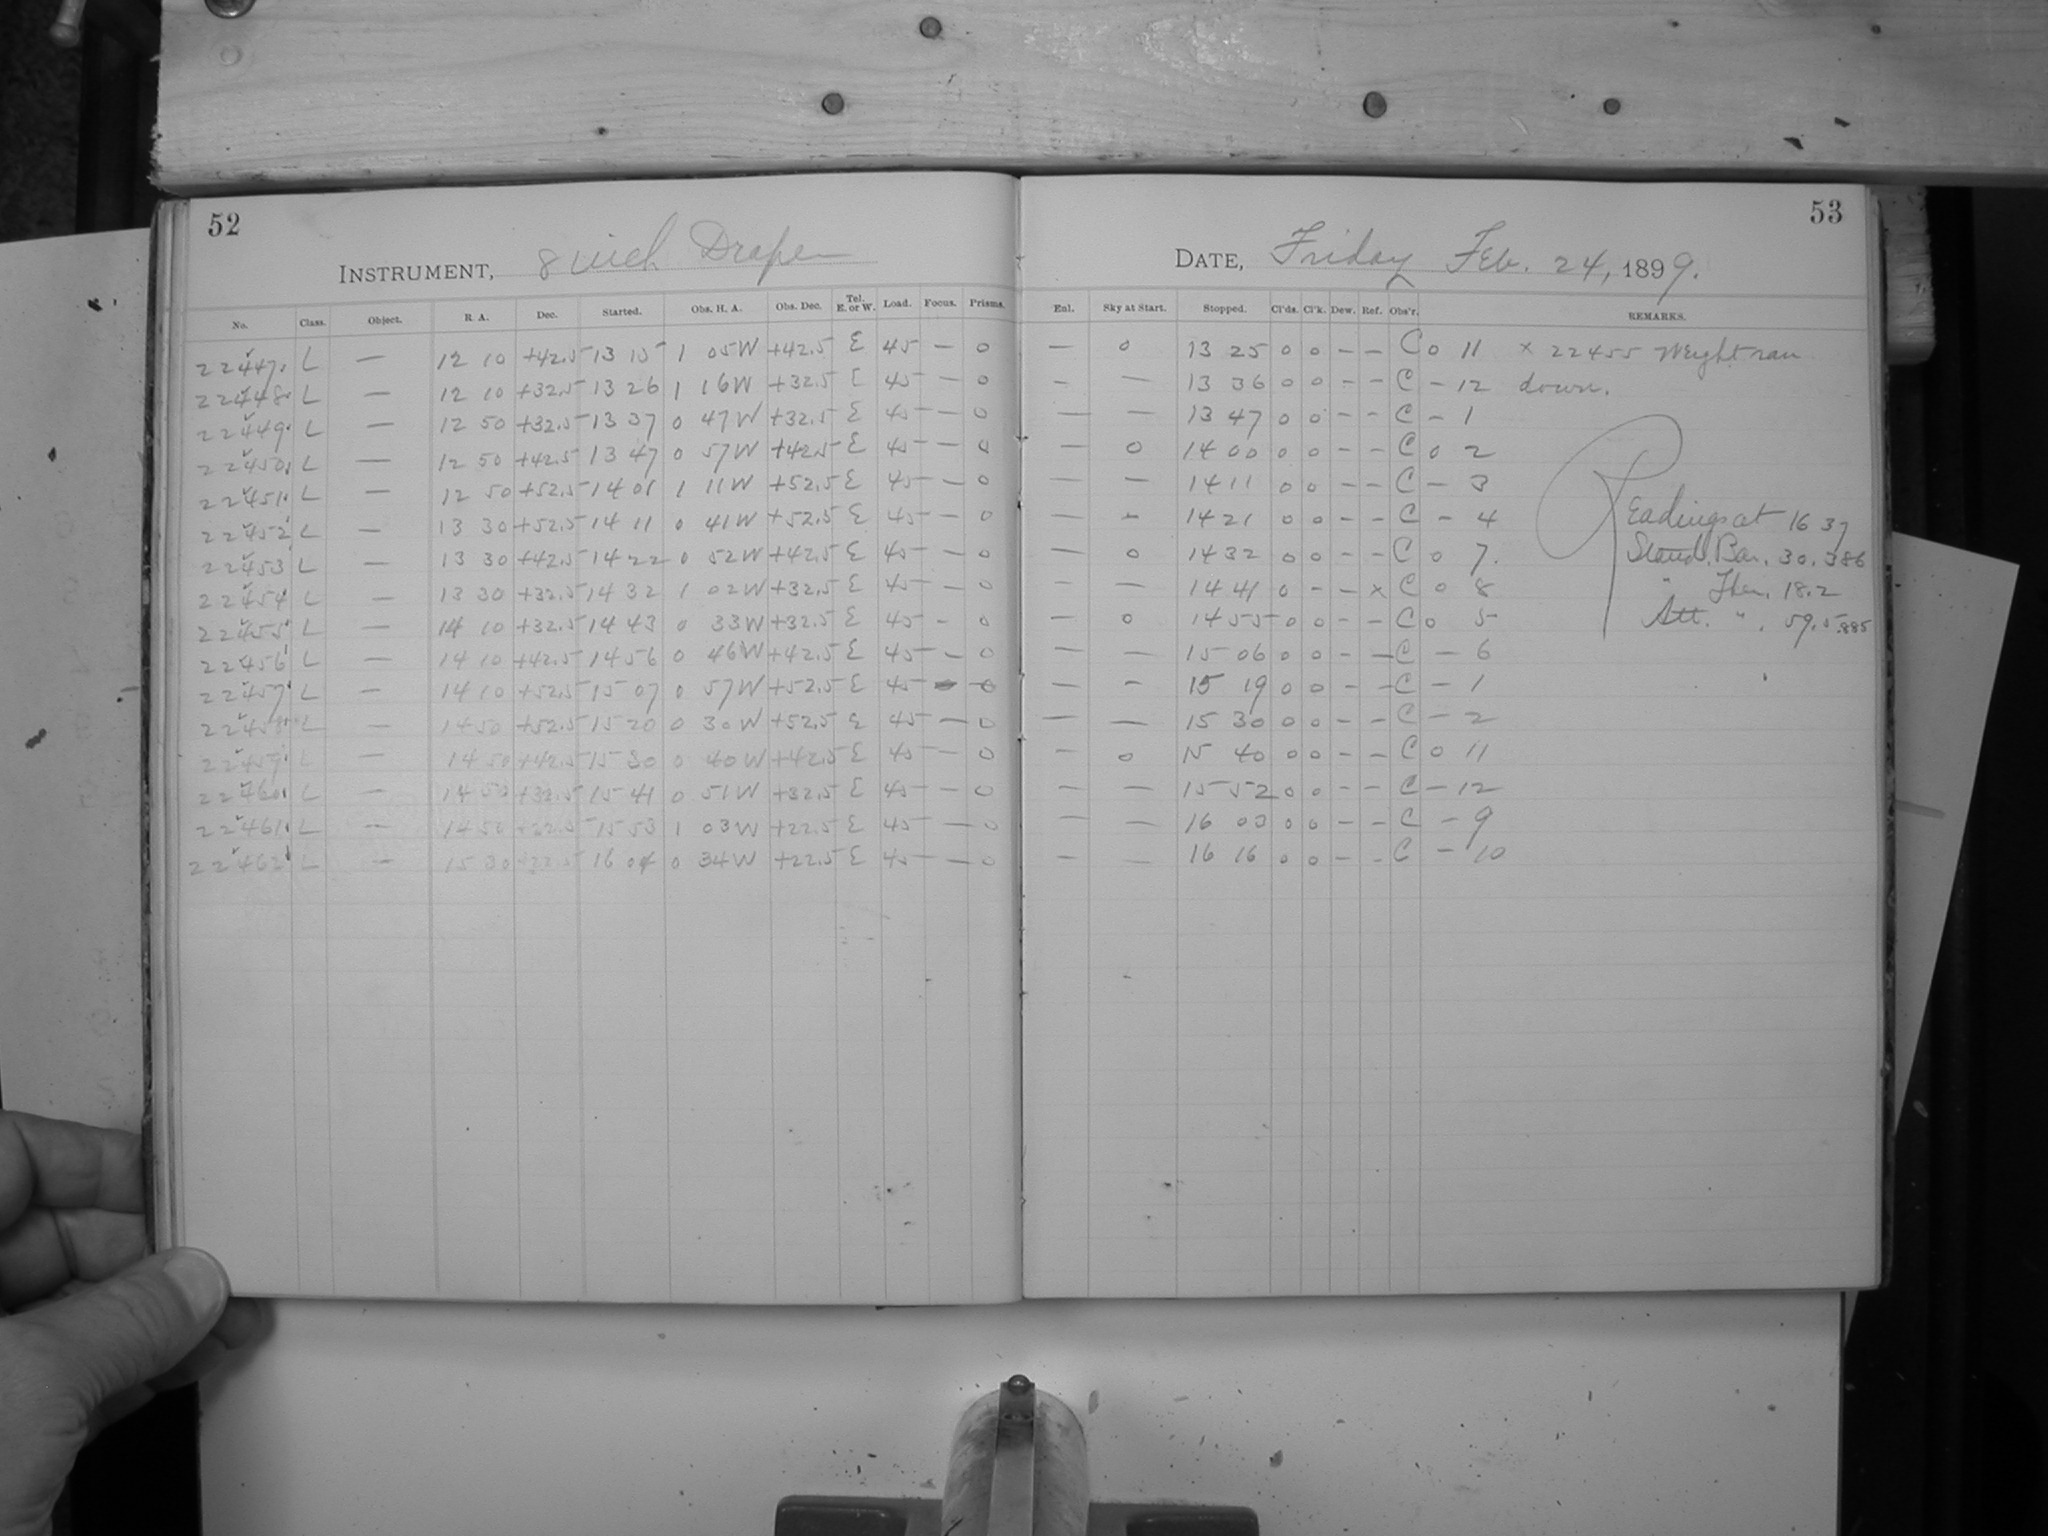 52
INSTRUMENT, 8 inch Draper
No. Class. Object. R. A. Dec. Started. Obs. H. A. Obs. Dec. Tel. E. or W. Load. Focus. Prisms.
22447. L — 12 10 +42.5 13 15 1 05W +42.5 E 45 — 0
22448. L — 12 10 +32.5 13 26 1 16W +32.5 E 45 — 0
22449. L — 12 50 +32.5 13 37 0 47W +32.5 E 45 — 0
22450. L — 12 50 +42.5 13 47 0 57W +42.5 E 45 — 0
22451. L — 12 50 +52.5 14 01 1 11W +52.5 E 45 — 0
22452 L — 13 30 +52.5 14 11 0 41W +52.5 E 45 — 0
22453 L — 13 30 +42.5 14 22 0 52W +42.5 E 45 — 0
22454 L — 13 30 +32.5 14 32 1 02W +32.5 E 45 — 0
22455 L — 14 10 +32.5 14 43 0 33W +32.5 E 45 — 0
22456 L — 14 10 +42.5 14 56 0 46W +42.5 E 45 — 0
22457 L — 14 10 +52.5 15 07 0 57W +52.5 E 45 — 0
22458 L — 14 50 +52.5 15 20 0 30W +52.5 E 45 — 0
22459 L — 14 50 +42.5 15 30 0 40W +42.5 E 45 — 0
22460. L — 14 50 +32.5 15 41 0 51W +32.5 E 45 — 0
22461. L — 14 50 +22.5 15 53 1 03W +22.5 E 45 — 0
22462 L — 15 30 +22.5 16 04 0 34W +22.5 E 45 — 0
53
DATE, Friday Feb. 24, 1899.
Enl. Sky at Start. Stopped. Cl'ds. Cl'k. Dew. Ref. Obs'r. REMARKS.
— 0 13 25 0 0 — — C 0 11 × 22455 Weight ran
— — 13 36 0 0 — — C — 12 down.
— — 13 47 0 0 — — C — 1
— 0 14 00 0 0 — — C 0 2
— — 14 11 0 0 — — C — 3
— — 14 21 0 0 — — C — 4 Readings at 16 37
— 0 14 32 0 0 — — C 0 7. Stand. Bar. 30.386
— — 14 41 0 — — × C 0 8 " Ther. 18.2
— 0 14 55 0 0 — — C 0 5 Att. " . 59.5 .885
— — 15 06 0 0 — — C — 6
— — 15 19 0 0 — — C — 1
— — 15 30 0 0 — — C — 2
— 0 15 40 0 0 — — C 0 11
— — 15 52 0 0 — — C — 12
— — 16 03 0 0 — — C — 9
— — 16 16 0 0 — — C — 10